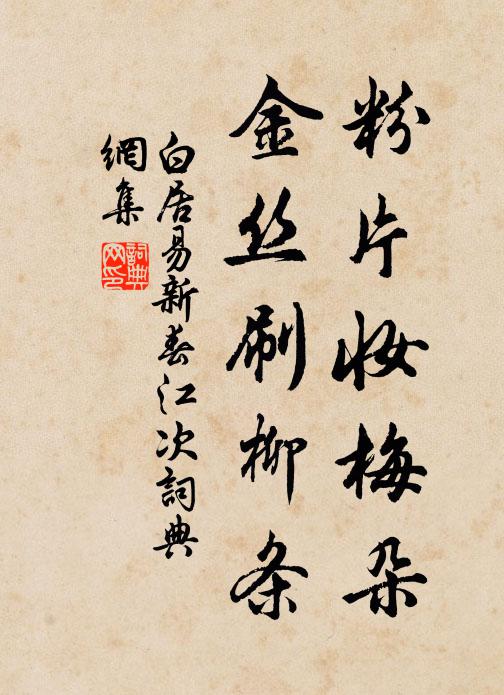 粉片妆梅朵
金丝刷柳条
白居易新春江次詞典
網集
詞典
网印